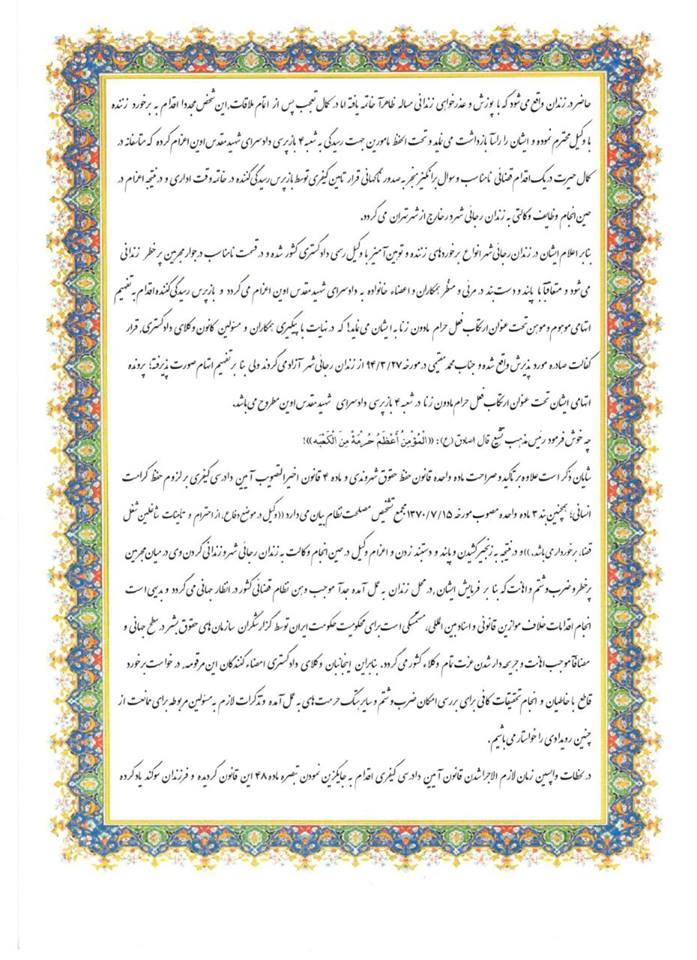 حاضر در زندان واقع می‌شود که با پوزش و عذرخواهی زندانی مساله ظاهراً خاتمه یافته اما در کمال تعجب پس از اتمام ملاقات، این شخص مجددا اقدام به برخورد زننده
با وکیل محترم نموده و ایشان را رأساً بازداشت می نماید و تحت الحفظ مامورین جهت رسیدگی به شعبه ۴ بازپرسی دادسرای شهید مقدس اوین اعزام کرده که متاسفانه در
کمال حیرت در یک اقدام قضائی نامناسب و سوال برانگیز منجر به صدور ناگهانی قرار تامین کیفری توسط بازپرس رسیدگی کننده در خاتمه وقت اداری و در نتیجه اعزام در
حین انجام وظایف وکالتی به زندان رجائی شهر در خارج از شهر تهران می گردد.
بنابر اعلام ایشان در زندان رجائی شهر انواع برخوردهای زننده و توهین آمیز با وکیل رسمی دادگستری کشور شده و در قسمت نامناسب در جوار مجرمین پرخطر زندانی
می شود و متعاقباً با پابند و دست بند در مرئی و منظر همکاران و اعضاء خانواده به دادسرای شهید مقدس اوین اعزام می گردد و بازپرس رسیدگی کننده اقدام به تفهیم
اتهامی موهوم و موهن تحت عنوان ارتکاب فعل حرام مادون زنا به ایشان می نماید! که در نهایت با پیگیری همکاران و مسئولین کانون وکلای دادگستری، قرار
کفالت صادره مورد پذیرش واقع شده و جناب محمد مقیمی در مورخه ۹۴/۳/۲۷ از زندان رجائی شهر آزاد می گردند ولی بنا بر تفهیم اتهام صورت پذیرفته؛ پرونده
اتهامی ایشان تحت عنوان ارتکاب فعل حرام مادون زنا در شعبه ۴ بازپرسی دادسرای شهید مقدس اوین مطروح می باشد.
چه خوش فرمود رئیس مذهب تشیع قال الصادق (ع): «الْمُؤْمِنُ أَعْظَمُ حُرْمَةً مِنَ الْكَعْبَه»!
شایان ذکر است علاوه بر تاکید و صراحت ماده واحده قانون حفظ حقوق شهروندی و ماده ۴ قانون اخیرالتصویب آیین دادرسی کیفری بر لزوم حفظ کرامت
انسانی؛ همچنین بند ۳ ماده واحده مصوب مورخه ۱۳۷۰/۷/۱۵ مجمع تشخیص مصلحت نظام بیان می دارد ((وکیل در موضع دفاع، از احترام و تامینات شاغلین شغل
قضاء برخوردار می باشد.))و در نتیجه به زنجیر کشیدن و پابند و دستبند زدن و اعزام وکیل در حین انجام وکالت به زندان رجائی شهر و زندانی کردن وی در میان مجرمین
پرخطر و ضرب و شتم و اهانت که بنا بر فرمایش ایشان، در محل زندان به عمل آمده جداً موجب وهن نظام قضائی کشور در انظار جهانی می گردد و بدیهی است
انجام اقدامات خلاف موازین قانونی و اسناد بین المللی، مستمسکی است برای محکومیت حکومت ایران توسط گزارشگران سازمان های حقوق بشر در سطح جهانی و
مضافاً موجب اهانت و جریحه دار شدن عزت تمام وکلاء کشور می گردد. بنابراین اینجانبان وکلای دادگستری امضاء کنندگان این مرقومه، درخواست برخورد
قاطع با خاطیان و انجام تحقیقات کافی برای بررسی امکان ضرب و شتم و سایر هتک حرمت های به عمل آمده و تذکرات لازم به مسئولین مربوطه برای ممانعت از
چنین رویدادی را خواستار می باشیم.
در لحظات واپسین زمان لازم الاجرا شدن قانون آیین دادرسی کیفری اقدام به جایگزین نمودن تبصره ماده ۴۸ این قانون گردیده و فرزندان سوگند یاد کرده